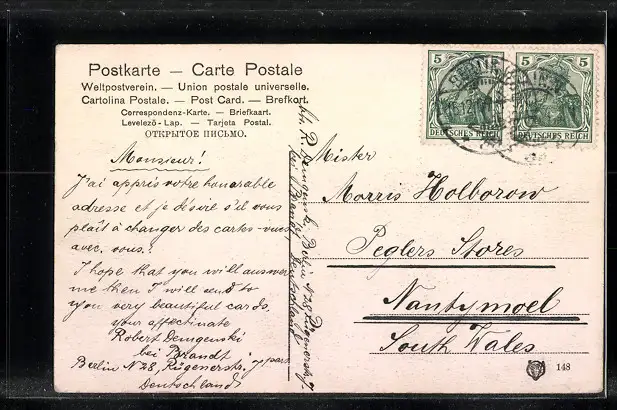 Postkarte — Carte Postale
Weltpostverein. — Union postale universelle.
Cartolina Postale. — Post Card. — Brefkort.
Correspondenz-Karte. — Briefkaart.
Levelező-Lap. — Tarjeta Postal.
ОТКРЫТОЕ ПИСЬМО.
Monsieur!
J'ai appris votre honorable
adresse et je désire s'il vous
plaît à changer des cartes-vues
avec vous.
I hope that you will answer
me then I will send to
you very beautiful cards.
your affectinate
Robert Demgenski
bei Brandt
Berlin N 28, Rügenerstr. 7 part
Deutschland
5 5
DEUTSCHES REICH
5 5
DEUTSCHES REICH
BERLIN
Mister
Morris Holborow
Peglers Stores
Nantymoel
South Wales
148
R. Demgenski, Berlin N 28, Rügenerstr. 7
bei Brandt, Deutschland